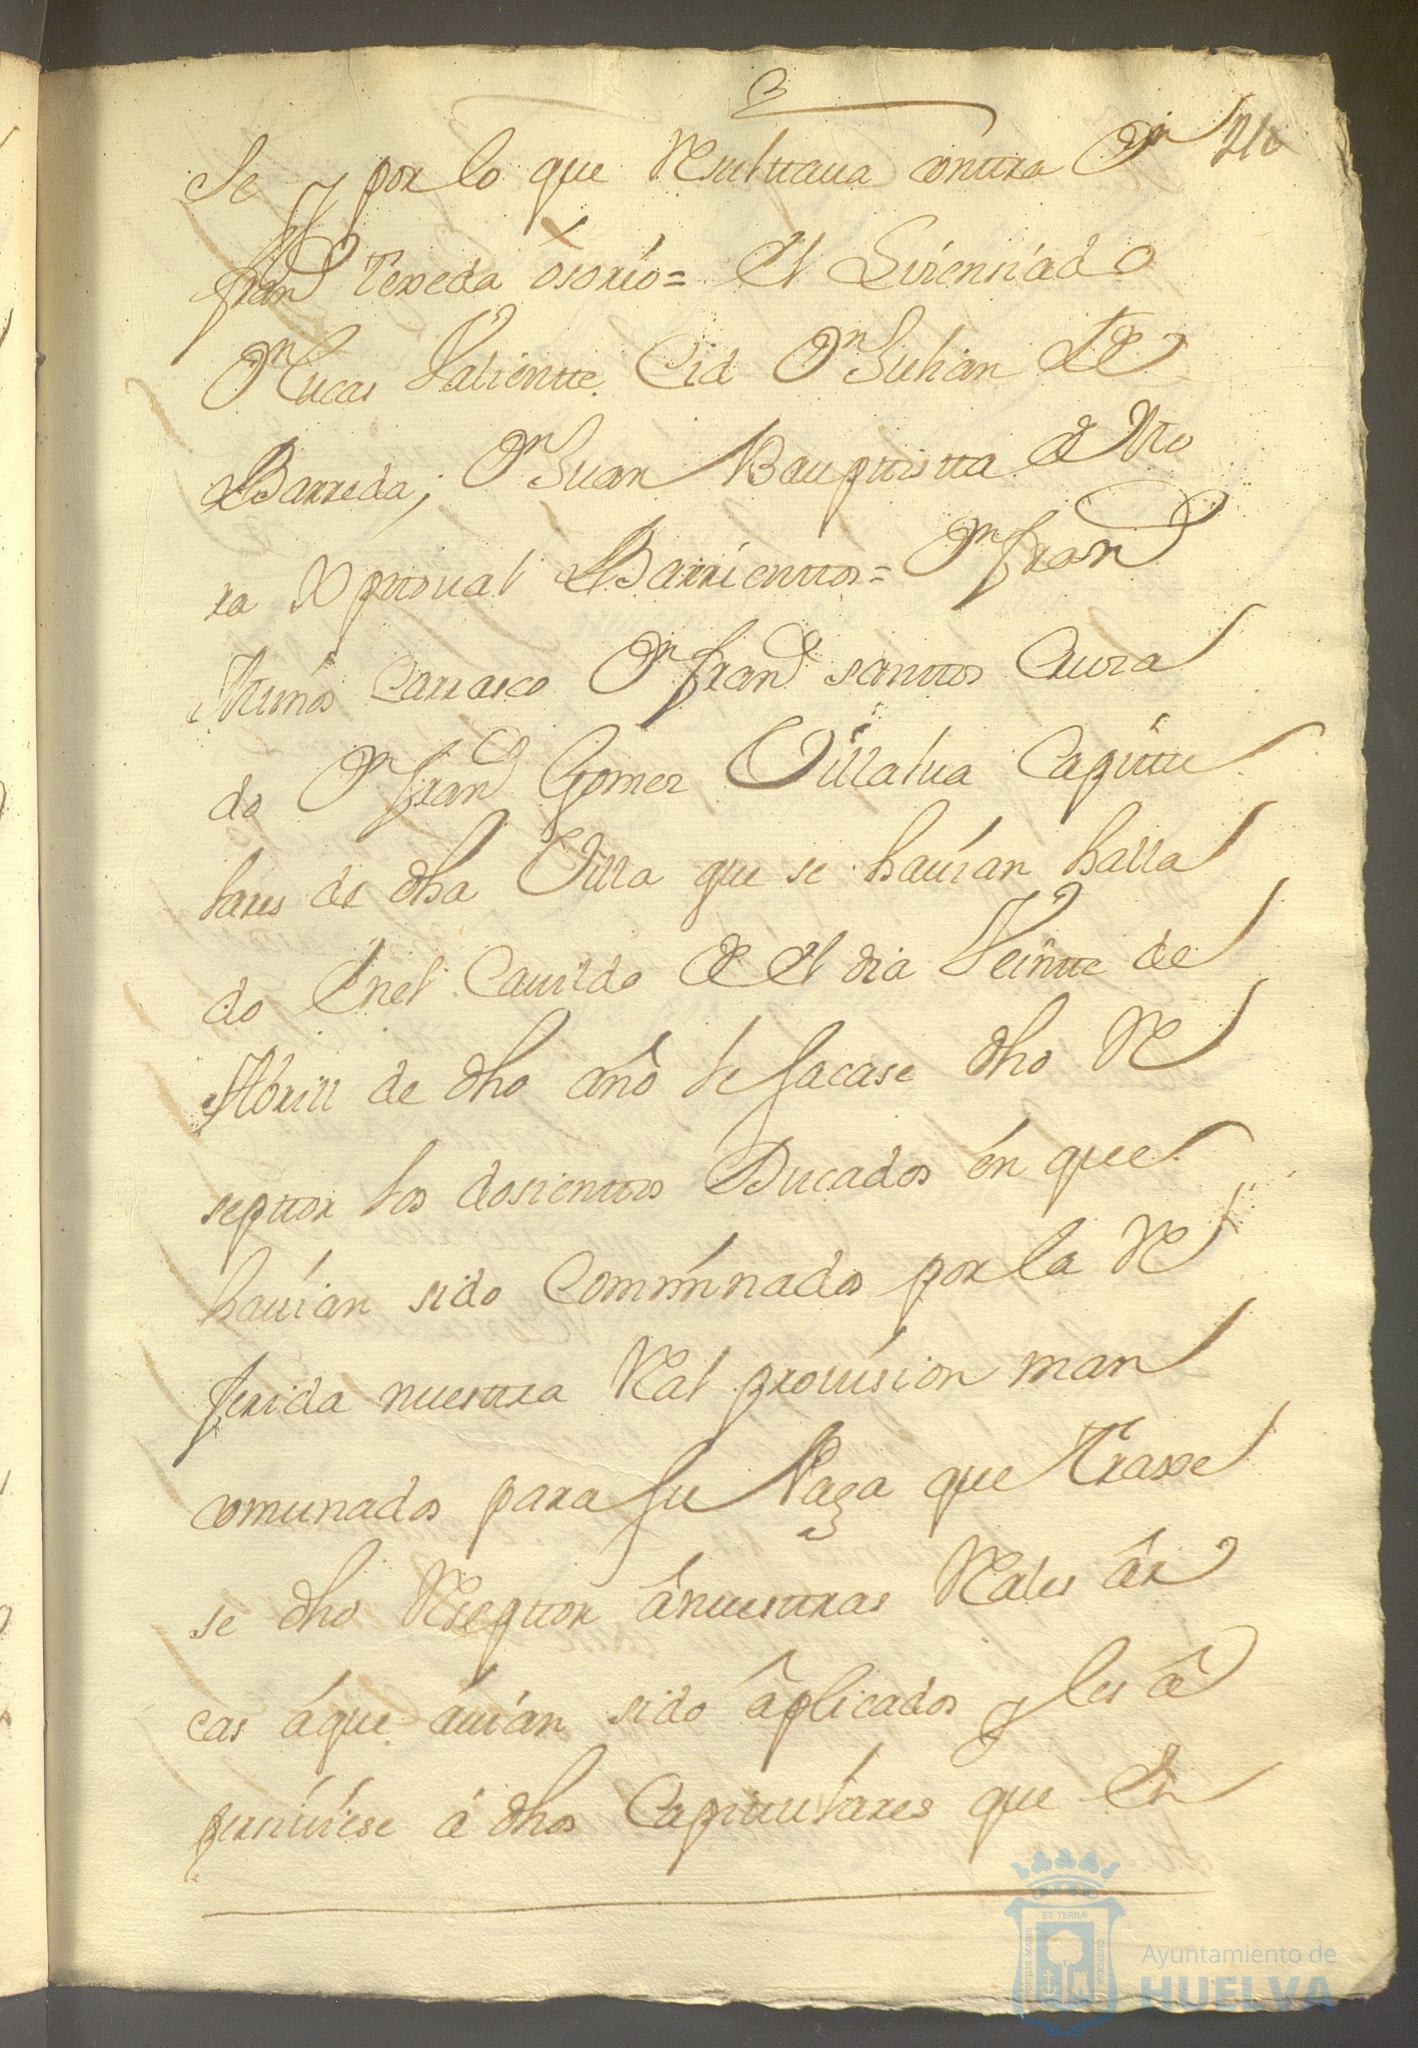 3
210
Se y por lo que Resultaua contra Dn
franco Texeda ósorio= el Lisensiado
Dn Lucas Valiente Cid Dn Julian de
Barreda; Dn Juan Bauptista de Mo
ra Xptoual Barrientos= Dn franco
Munós Carrasco Dn franco santtos Cura
do Dn franco Gomez Villalua Capittu
lares de dha Villa que se hauían halla
do Enel Cauildo de el dia Veintte de
Abrill de dho año le sacase dho Re
septtor los dosienttos Ducados én que
hauían sido Comínnados por la Re
ferida nuesttra Real prouision man
comunados para su Paga que Traxe
se dho Reseptor ânuestras Reales âr
cas áque áuían sido âplicados y les â
perciuiese á dhos Capittulares que En
PORTUS MARIS
ET TERRÆ
CUSTODIA
Ayuntamiento de
HUELVA